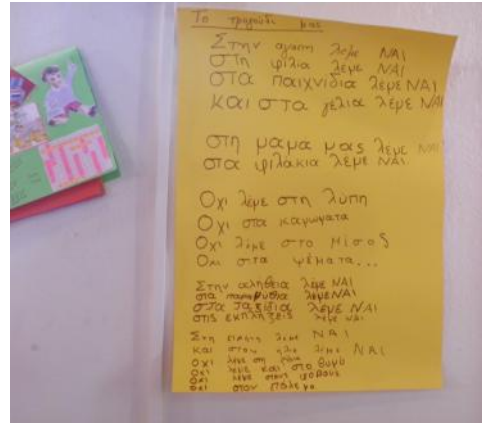 Το τραγούδι μας
Στην αγάπη λέμε ΝΑΙ
στη φιλία λέμε ΝΑΙ
στα παιχνίδια λέμε ΝΑΙ
και στα γέλια λέμε ΝΑΙ
στη μαμά μας λέμε ΝΑΙ
στα φιλάκια λέμε ΝΑΙ.
Όχι λέμε στη λύπη
Όχι στα καμώματα
Όχι λέμε στο μίσος
Όχι στα ψέματα...
Στην αλήθεια λέμε ΝΑΙ
στα παραμύθια λέμε ΝΑΙ
στα ταξίδια λέμε ΝΑΙ
στις εκπλήξεις λέμε ΝΑΙ
Στη ειρήνη λέμε ΝΑΙ
και στον ήλιο λέμε ΝΑΙ
Όχι λέμε στη
Όχι λέμε και στο θυμό
Όχι λέμε στους φόβους
όχι στον πόλεμο